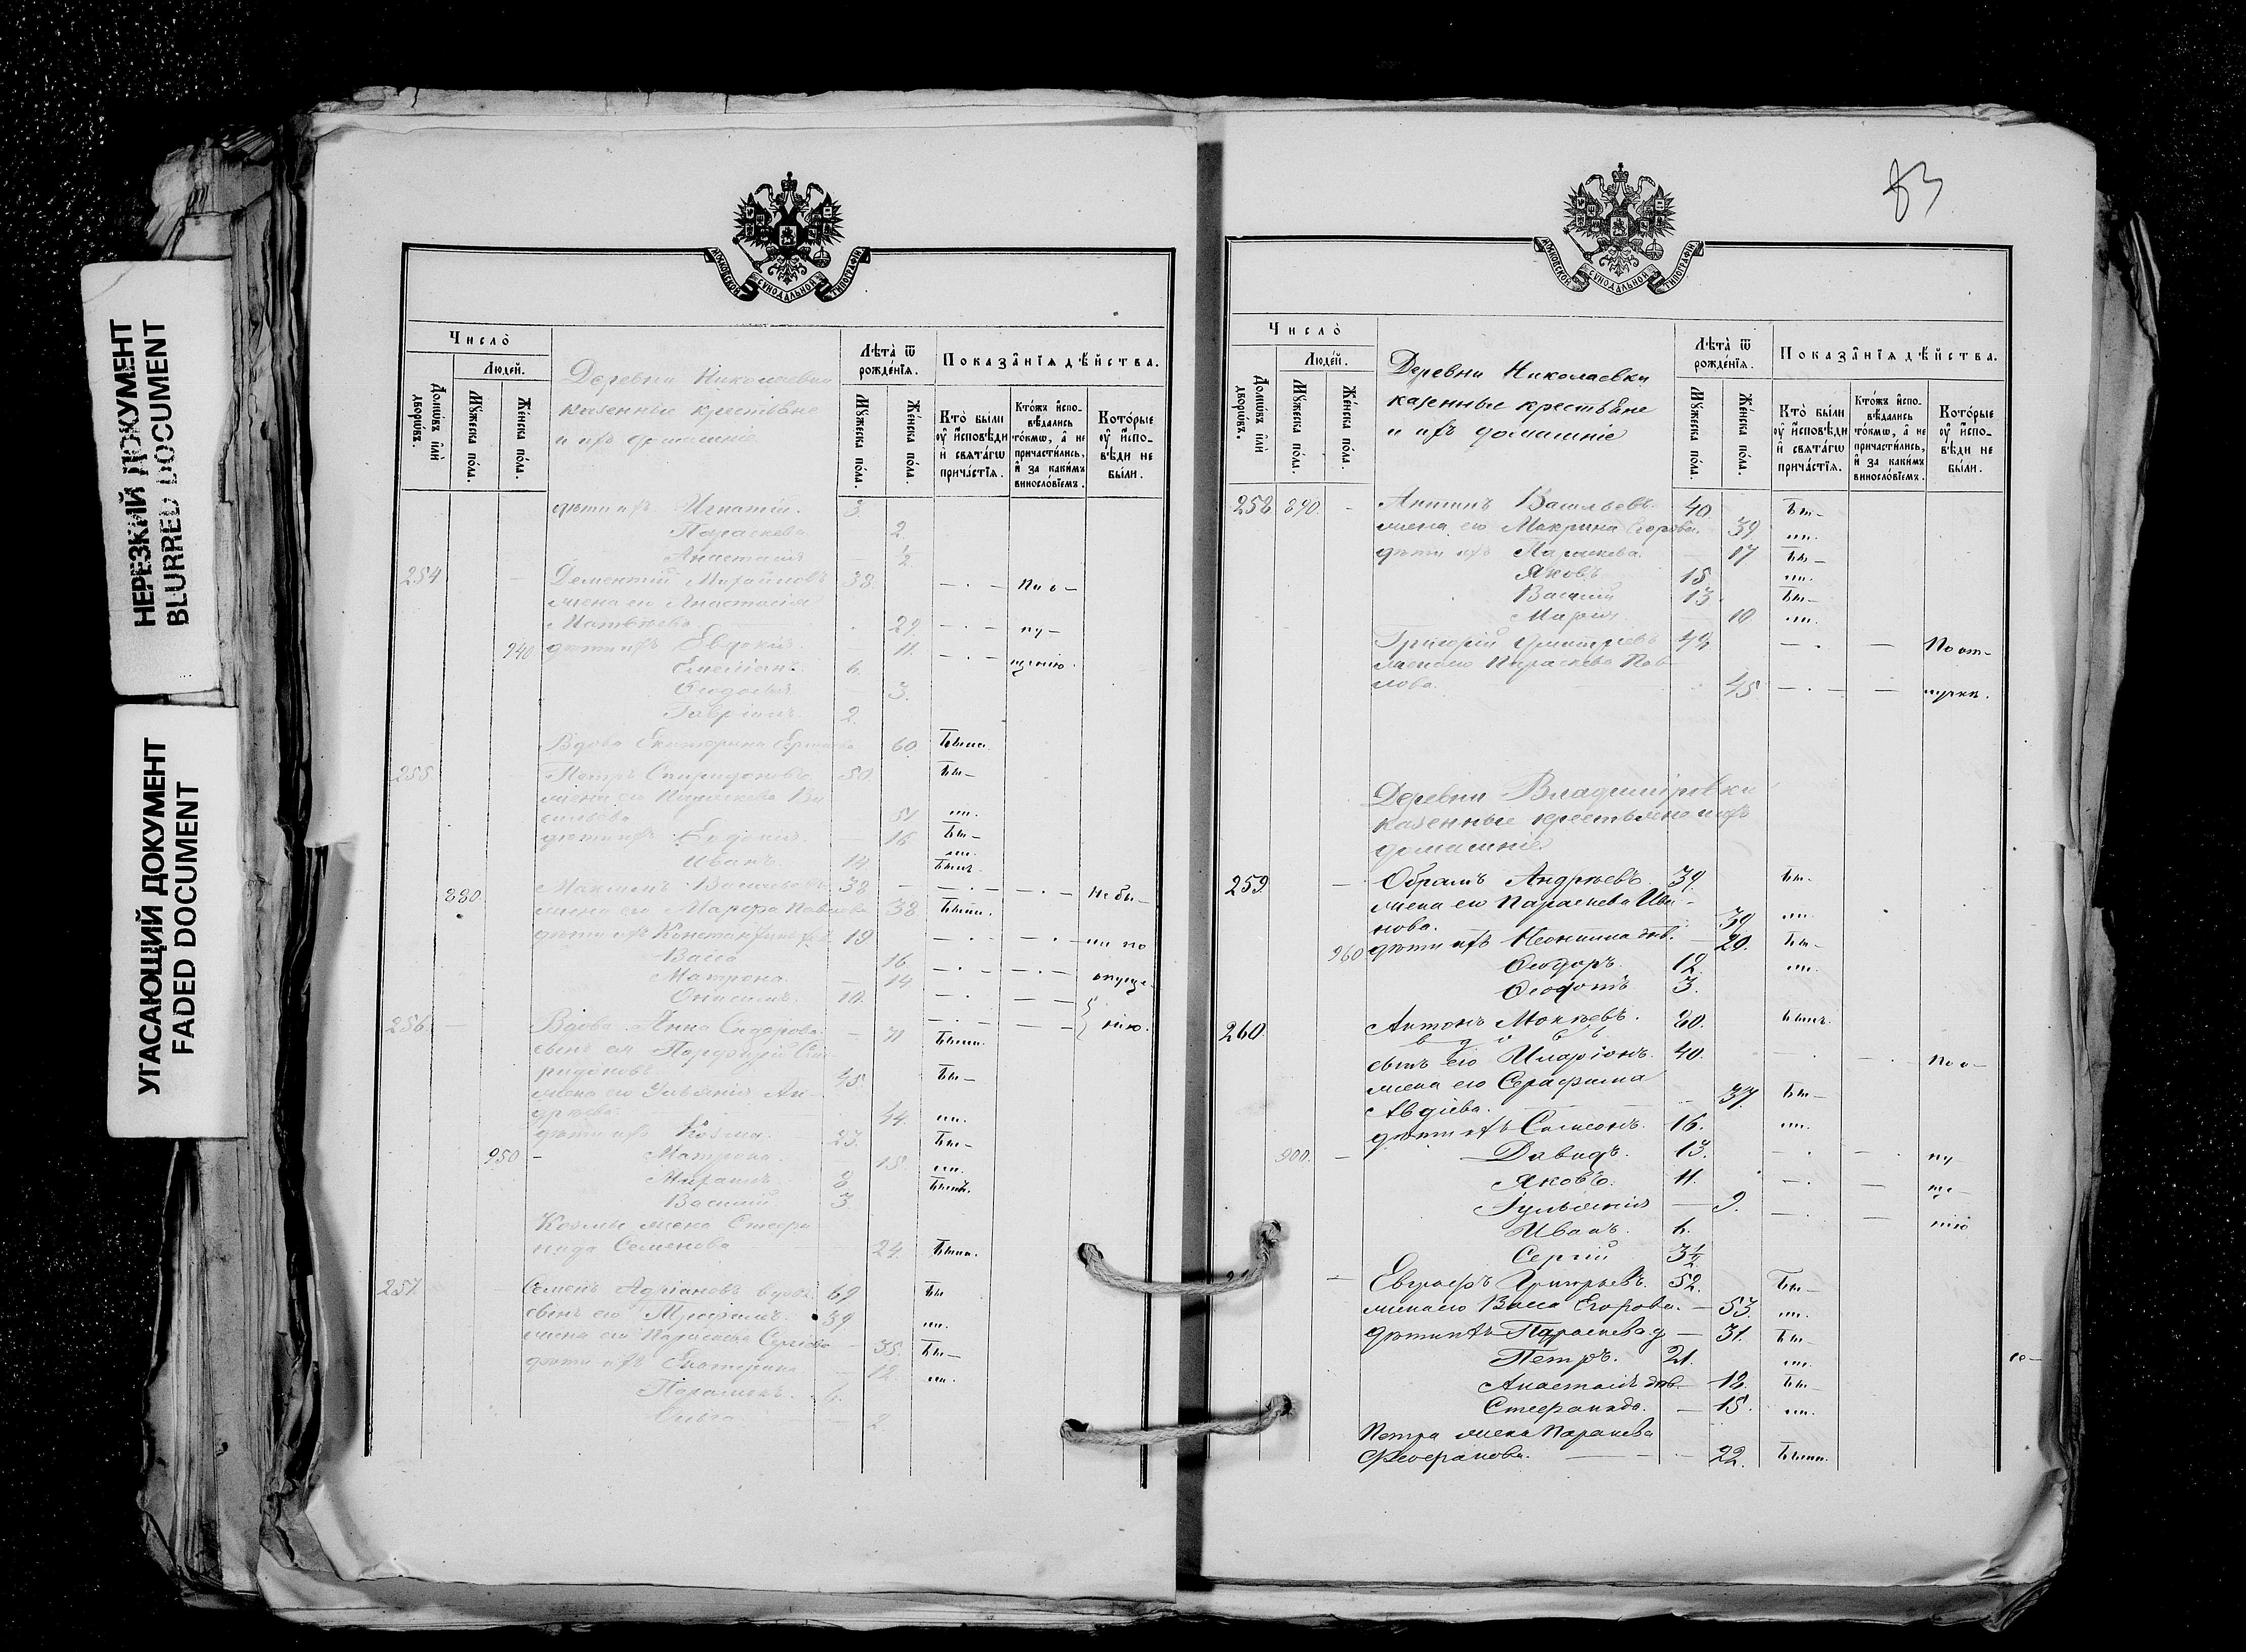 НЕРЕЗКИЙ ДОКУМЕНТ
BLURRED DOCUMENT
УГАСАЮЩИЙ ДОКУМЕНТ
FADED DOCUMENT
МОСКОВСКОЙ СѴНОДАЛЬНОЙ ТИПОГРАФІИ
Число̀
Людей.
Домѡвъ или дворѡвъ.
Мꙋжеска пола.
Женска пола.
Деревни Николаевки
казенные крестьяне
и ихъ домашніе
Лѣта̀ ѿ рожденїѧ.
Мꙋжеска пола.
Женска пола.
Показанїѧ дѣйства.
Кто̀ были ᲂу҆ исповѣди и свѧтагѡ причастїѧ.
Ктожъ исповѣдались токмѡ, а не причастились, и за какимъ винословїемъ.
Которые ᲂу҆ исповѣди не были.
дѣти ихъ Игнатій. 3
Параскева 2.
Анастасія 1/2
254 Дементій Михайловъ 38. По о-
жена его Анастасія
Матвѣева 29. пу-
940 дѣти ихъ Евдокія 11. щенію.
Емеліанъ 6.
Ѳеодосія 3.
Гавріилъ 2.
Вдова Екатерина 60. Бына
255. Петръ Спиридоновъ 50. Бы-
жена его Параскева Ва
сильева 51 ли.
дѣти ихъ Евдокія 16 Бы-
Иванъ. 14 Былъ.
880. Максимъ Васильевъ 38 Не бы-
жена его Марфа Павлова 38 Была.
дѣти ихъ Константинъ 19 ли по
Васса 16
Матрона. 14 опуще-
Онисимъ. 10. нію.
256 Вдова Анна Сидорова 71 Была.
сынъ ея Порфирій Спи
ридоновъ 45. Бы-
жена его Ульянія Ан-
дрѣева 44. ли.
дѣти ихъ Козма. 23. Бы-
950 Матрона. 15. ли.
8
Василій. 3.
Козмы жена Стефа
нида Семенова 24. Была.
257. Семенъ Адріановъ вдовъ 69 Бы
сынъ его 39 ли.
жена его Параскева Сергіева 35. Бы-
дѣти ихъ Екатерина 12. ли.
6.
Ольга 2
83
МОСКОВСКОЙ СѴНОДАЛЬНОЙ ТИПОГРАФІИ
Число̀
Людей.
Домѡвъ или дворѡвъ.
Мꙋжеска пола.
Женска пола.
Деревни Николаевки
казенные крестьяне
и ихъ домашніе
Лѣта̀ ѿ рожденїѧ.
Мꙋжеска пола.
Женска пола.
Показанїѧ дѣйства.
Кто̀ были ᲂу҆ исповѣди и свѧтагѡ причастїѧ.
Ктожъ исповѣдались токмѡ, а не причастились, и за какимъ винословїемъ.
Которые ᲂу҆ исповѣди не были.
258 890. Антипъ Васильевъ. 40 Бы-
жена его Макрина Егорова. 39. ли.
дѣти ихъ Параскева. 17 Бы-
Яковъ 15. ли.
Василій 13. Бы-
Марія 10. ли.
Григорій Дмитріевъ 44 По от-
жена его Параскева Пав-
лова. 45. лучкѣ.
Деревни Владиміровки
казенные крестьяне и ихъ
домашніе
259. Обрамъ Андрѣевъ. 39. Бы-
жена его Параскева Ива-
нова. 39. ли.
960 дѣти ихъ Неонилла двѣ. 20. Бы-
Ѳеодоръ. 12. ли.
Ѳеодотъ 3.
260. Антонъ Мокѣевъ. 60. Былъ.
вдовъ
сынъ его Иларіонъ. 40. По о-
жена его Серафима
Авдіева. 37 Бы-
дѣти ихъ Самсонъ. 16. ли.
900. Давидъ. 13. пу
Яковъ. 11. ще-
Іуліанія 9. нію
Иванъ. 6.
Сергій 3 1/2
Евграфъ Григорьевъ. 52. Бы-
жена его Васса Егорова. 53. ли.
дѣти ихъ Параскева д 31. Бы-
Петръ. 21. ли.
Анастасія двѣ 18. Бы-
Стефанида. 15. ли.
Петра жена Параскева
Ѳеофанова. 22. Была.